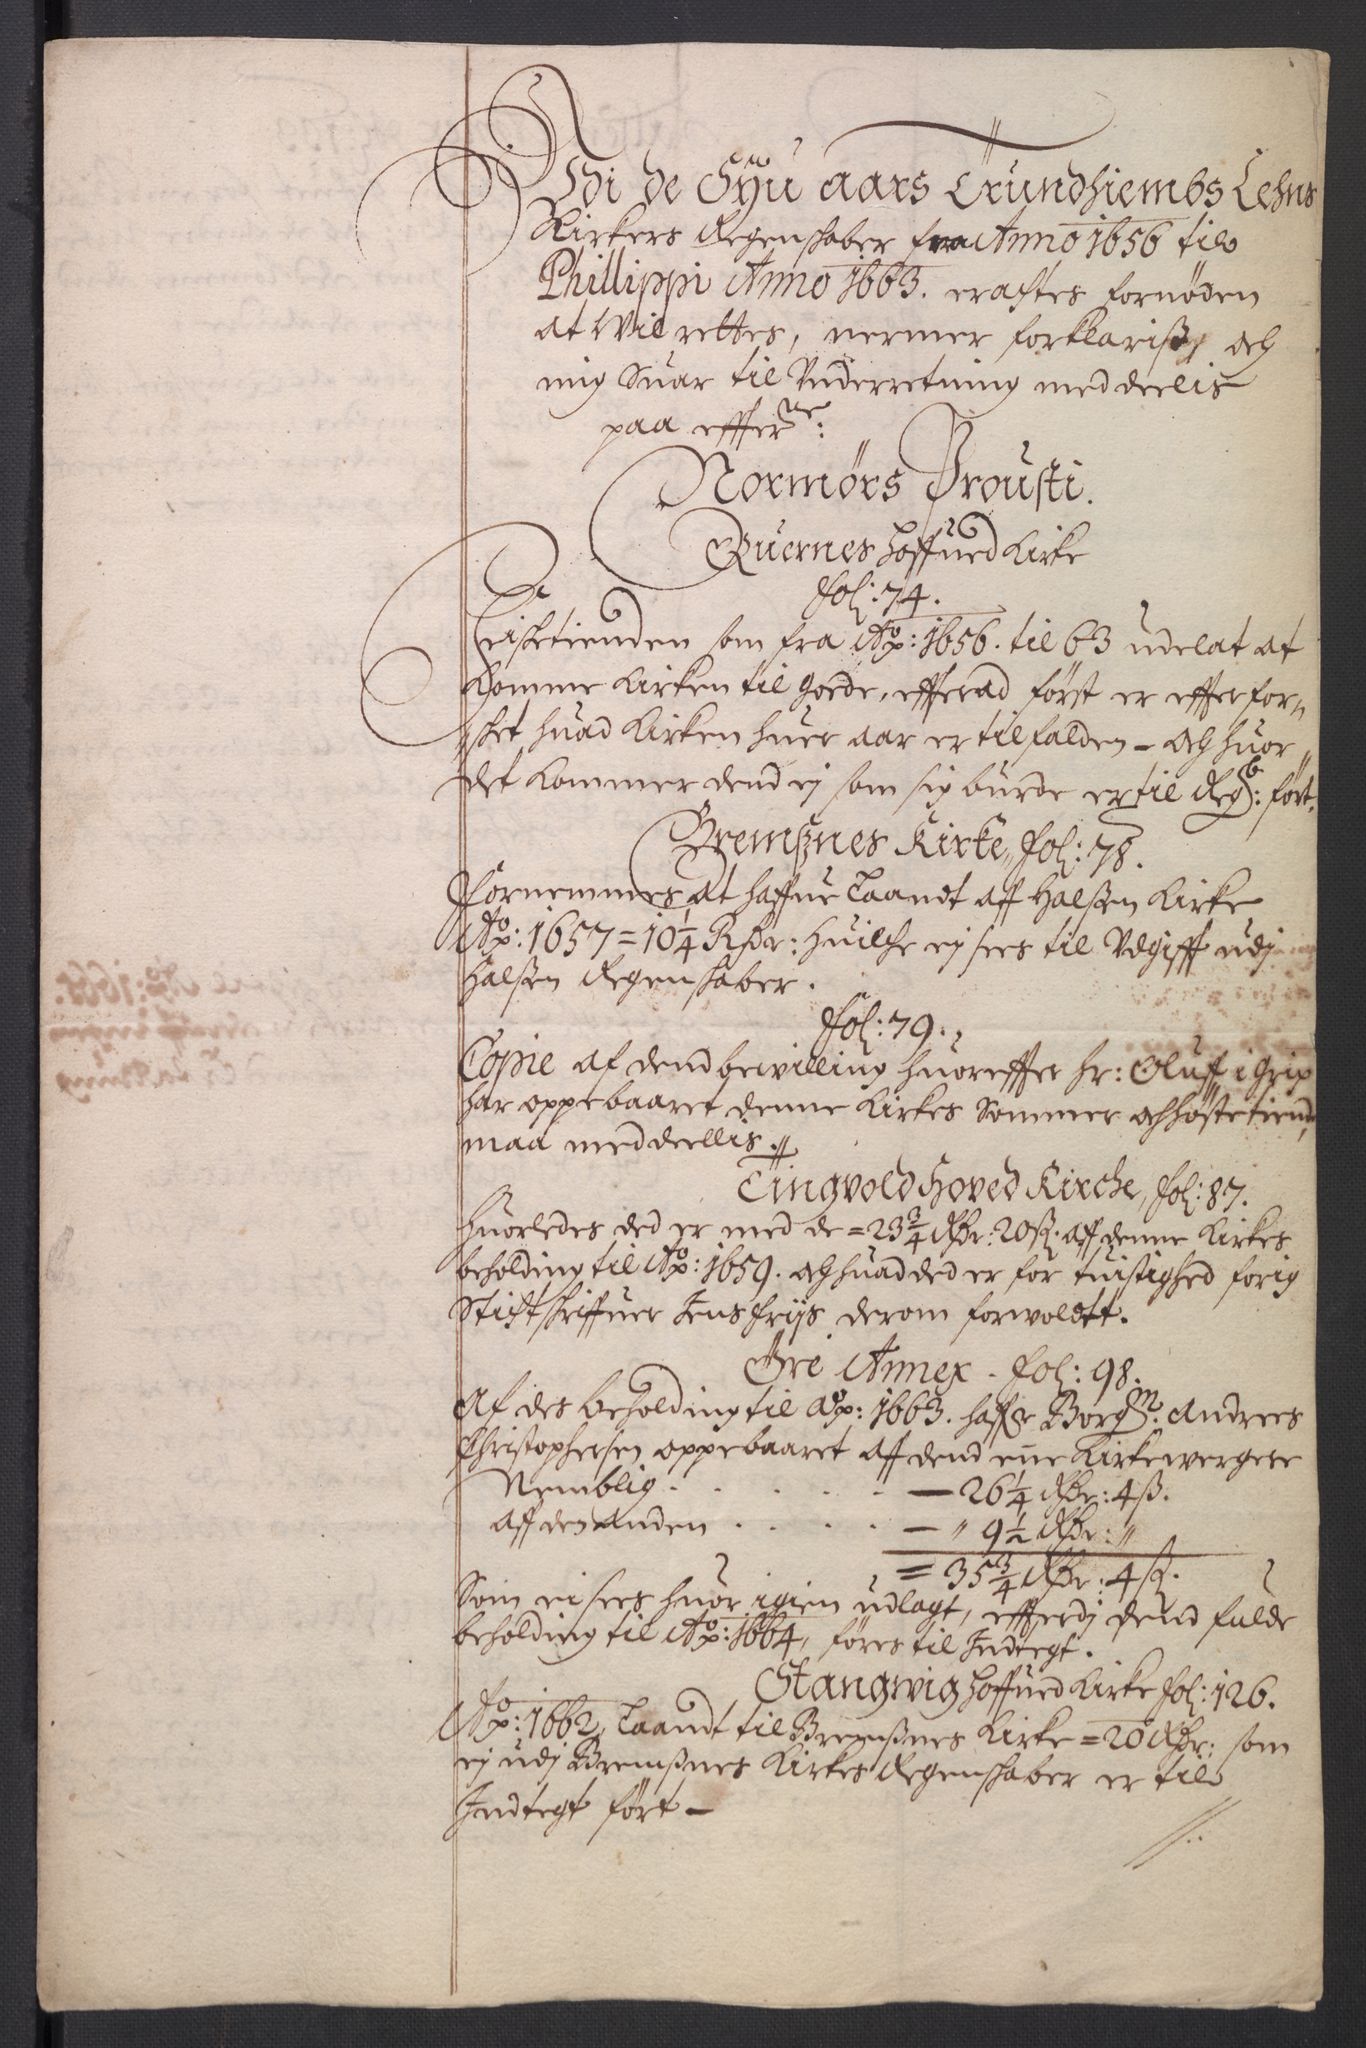 Udi de Syu aars Trundhiembs Lehns
Kirkers Regenskaber fra Anno 1656 til
Phillippi Anno 1663. eractes fornöden
at Wil rettes, nermer forklariß, och
mig Suar til Underretning meddeelis
paa effterne:
Normörs Prousti.
Quernes hoffued Kirke
fol: 74.
Fisketienden som fra Ao: 1656. til 63 udelat at
komme Kirken til goede, efftterad först er effterfor¬
sket huad Kirken huer aar er tilfalden – och huor
det kommer dend ej som sig burde er til Regb: fört.
Bremßnes Kirke, fol: 78.
Fornemmes at haffue laandt aff Halßen Kirke
Ao: 1657 = 10¼ Rdr: huilche ej sees til Udgifft udj
Halßen Regenskaber.
fol: 79.
Copie af dend bevilling huoreffter hr: Oluff i Grip
har oppebaaret denne Kirkes Sommer och höstetiende,
maa meddeellis.
Tingvold Hoved Kirche, fol: 87.
Huorledes ded er med de = 23¾ Rdr: 20 ß. aff denne Kirkes
beholding til Ao: 1659. och huad ded er for tuistighed forig
Stiftskriffuer Jens friis derom forvoldtt.
Öre Annex – fol: 98.
Af des beholding til Ao: 1663. haffr Borgm. Andrees
Christophersen oppebaaret aff dend ene Kirkewergere
Nemblig . . . . . – 26¼ Rdr: 4 ß.
aff den anden . . . . – " 9½ Rdr: "
= 35¾ Rdr: 4 ß.
Som ei sees huor igien udlagt, effterdj dend fulde
beholding til Ao: 1664, föres til Indtegt.
Stangwig hoffued Kirke fol: 126.
Ao: 1662, laandt til Bremßnes Kirke = 20 Rdr: som
ej udj Bremßnes Kirkes Regenskaber er til
Indtegt fört –